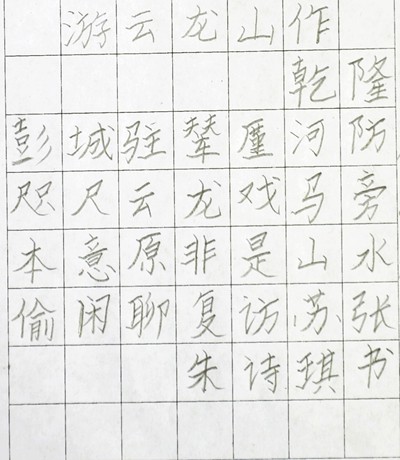 游云龙山作
乾隆
彭城驻辇厪河防
咫尺云龙戏马旁
本意原非是山水
偷闲聊复访苏张
朱诗琪书